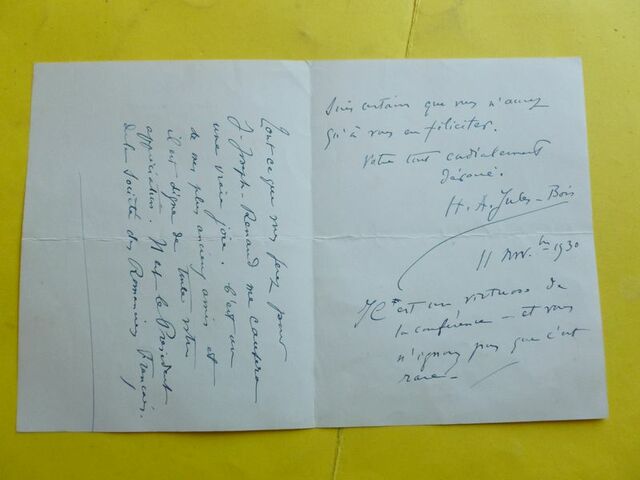 Tout ce que vous ferez pour
J-Joseph-Renaud me causera
une vraie joie. C'est un
de mes plus anciens amis et
il est digne de toute votre
appréciation. Il est le Président
de la Société des Romanciers Français.
suis certain que vous n'aurez
qu'à vous en féliciter.
Votre tout cordialement
dévoué.
H. A. Jules-Bois
11 Nov. bre 1930
C'est un virtuose de
la conférence — et vous
n'ignorez pas que c'est
rare —